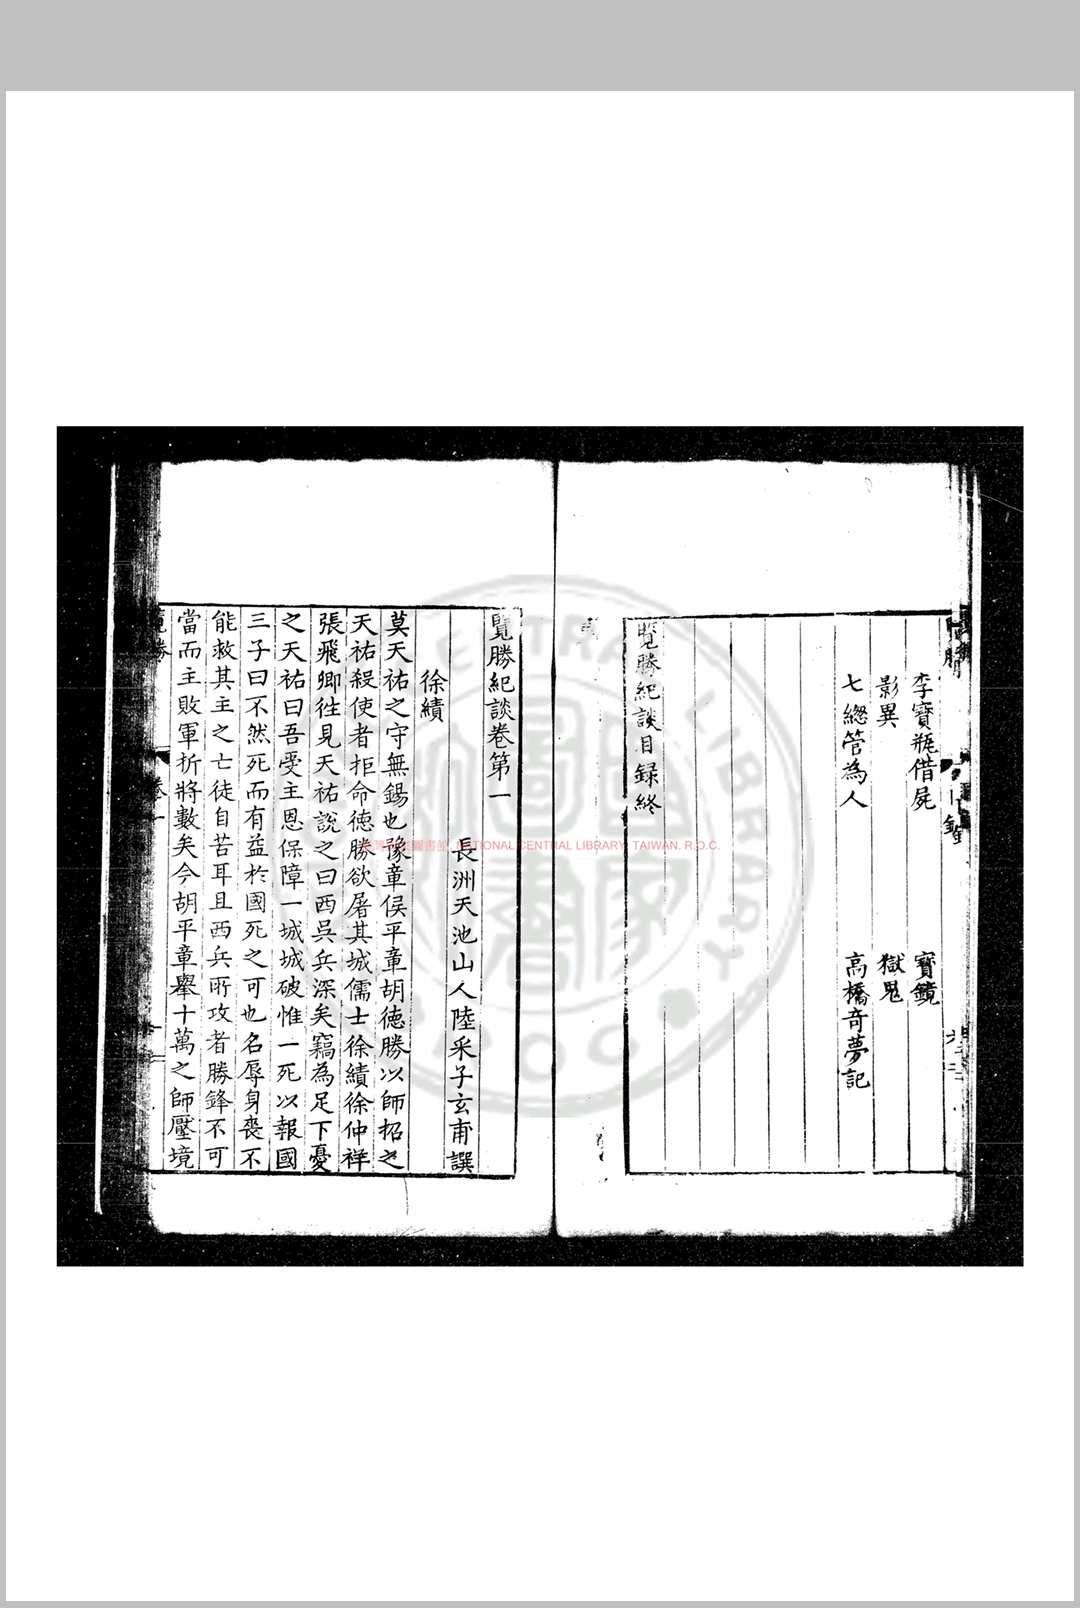 李寶瓶借屍
寶鏡
影異
獄鬼
七總管為人
高橋奇夢記
覽勝紀談目録終
覽勝紀談卷第一
長洲天池山人陸采子玄甫譔
徐績
莫天祐之守無錫也豫章侯平章胡德勝以師招之
天祐殺使者拒命德勝欲屠其城儒士徐績徐仲祥
張飛卿徃見天祐說之曰西吳兵深矣竊為足下憂
之天祐曰吾受主恩保障一城城破惟一死以報國
三子曰不然死而有益於國死之可也名辱身喪不
能救其主之亡徒自苦耳且西兵所攻者勝鋒不可
當而主敗軍折將數矣今胡平章舉十萬之師壓境
NATIONAL CENTRAL LIBRARY, TAIWAN, R.O.C.